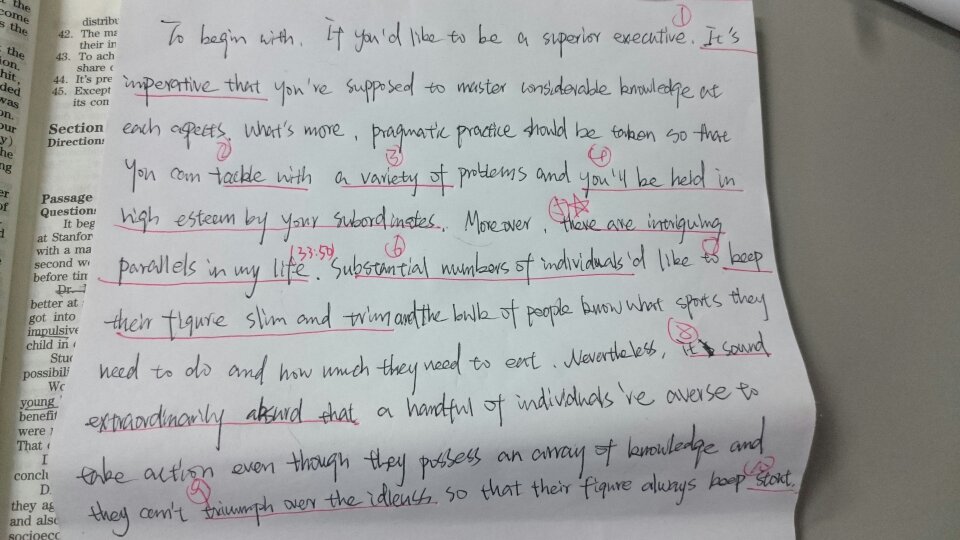 come
the
hit,
ded
was
on.
our
y)
he
ng
er
of
distribu
42. The ma
their in
43. To ach
share c
44. It's pre
45. Except
its con
Section
Direction
Passage
Question
It beg
at Stanfor
with a ma
second w
before tin
Dr. I
better at
got into
impulsive
child in
Stu
possibili
Wo
young
benefit
were
That
I
conclu
D.
they ag
and also
socioec
①
To begin with, If you'd like to be a superior executive. It's
imperative that you're supposed to master considerable knowledge at
each aspects. What's more, pragmatic practice should be taken so that
② ③ ④
you can tackle with a variety of problems and you'll be held in
high esteem by your subordinates. Moreover, ⑤☆ there are intriguing
parallels in my life (33:50). ⑥ Substantial numbers of individuals'd like to ⑦ keep
their figure slim and trim and the bulk of people know what sports they
need to do and how much they need to eat. Nevertheless, ⑧ it sound
extraordinarily absurd that a handful of individuals've averse to
take action even though they possess an array of knowledge and
they can't ⑨ triumph over the idleness so that their figure always keep ⑩ stout.